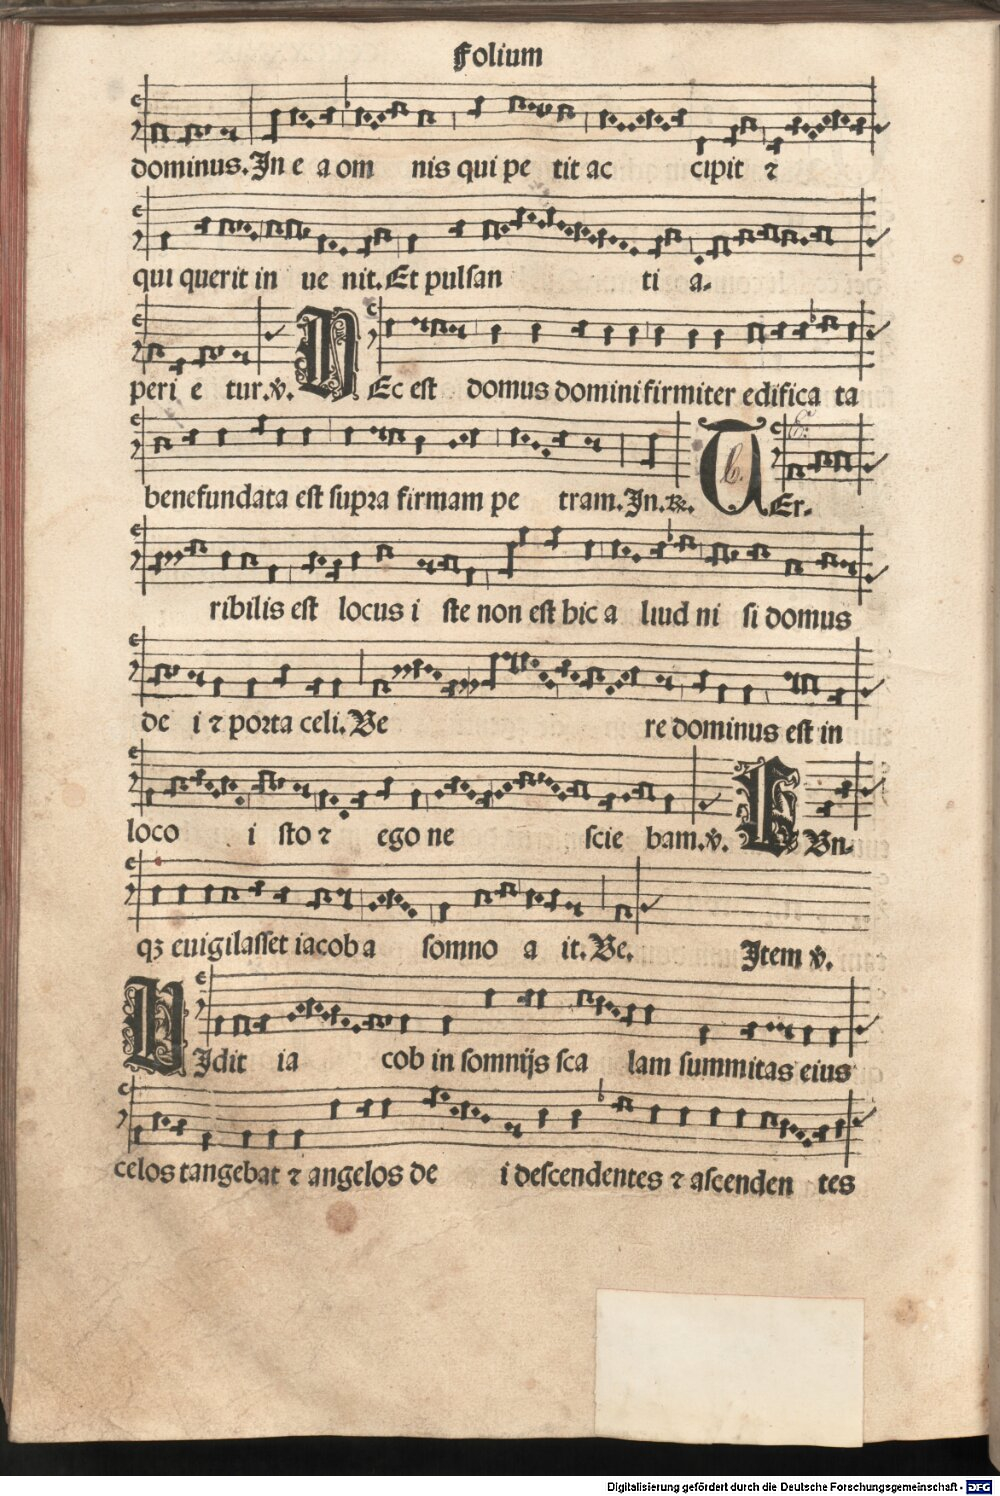 Folium
dominus. In e a om nis qui pe tit ac cipit ⁊
qui querit in ue nit. Et pulsan ti a-
peri e tur. ℣.
D Ec est domus domini firmiter edifica ta
benefundata est supra firmam pe tram. In. ℟.
T Er-
ribilis est locus i ste non est hic a liud ni si domus
de i ⁊ porta celi. Ve re dominus est in
loco i sto ⁊ ego ne scie bam. ℣.
E Vn-
qꝫ euigilasset iacob a somno a it. Ve. Item ℣.
V Idit ia cob in somnijs sca lam summitas eius
celos tangebat ⁊ angelos de i descendentes ⁊ ascenden tes
Digitalisierung gefördert durch die Deutsche Forschungsgemeinschaft - DFG